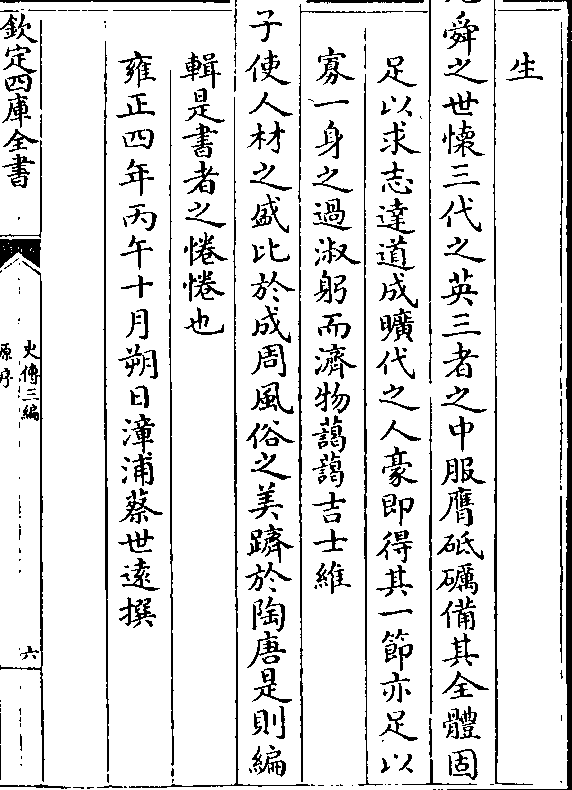 生
舜之世懐三代之英三者之中服膺砥礪備其全體固
足以求志達道成曠代之人豪即得其一節亦足以
寡一身之過淑躬而濟物藹藹吉士維
子使人材之盛比於成周風俗之美躋於陶唐是則編
輯是書者之惓惓也
雍正四年丙午十月朔日漳浦蔡世遠撰
欽定四庫全書
史傳三編
原序
六